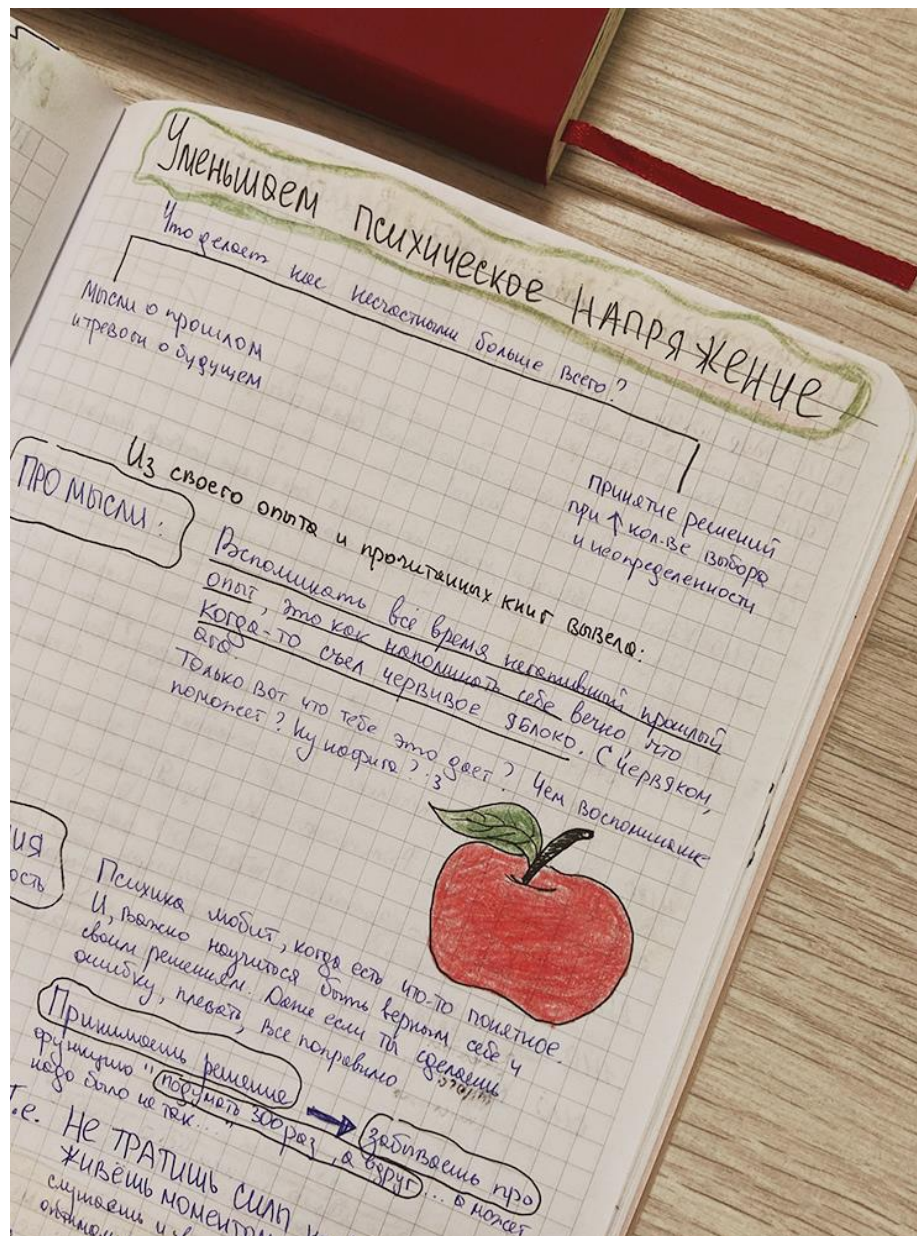 Уменьшаем психическое напряжение
Что делает нас несчастными больше всего?
Мысли о прошлом
и тревоги о будущем
принятие решений
при ↑ кол-ве выбора
и неопределенности
Из своего опыта и прочитанных книг вывела:
ПРО МЫСЛИ:
Вспоминать всё время негативный прошлый
опыт, это как напоминать себе вечно что
когда-то съел червивое яблоко. С червяком,
ага.
Только вот что тебе это даёт? Чем воспоминание
поможет? Ну нафига? :3
ИЯ
ость
Психика любит, когда есть что-то понятное.
И, важно научиться быть верным себе и
своим решениям. Даже если ты сделаешь
ошибку, плевать, все поправимо
Принимаешь решение → забываешь про
функцию "подумать 300 раз, а вдруг... а может
надо было не так..."
Т.е. НЕ ТРАТИШЬ СИЛЫ
живёшь моментом
слушаешь и